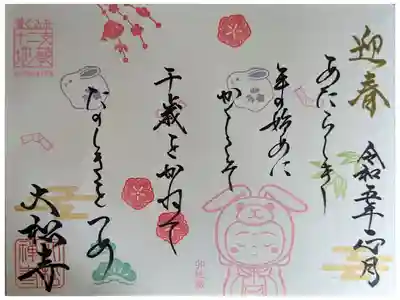 迎春
令和五年正月
あたらしき
年の始めに
かくしこそ
千歳をかねて
たのしきをつめ
大松寺